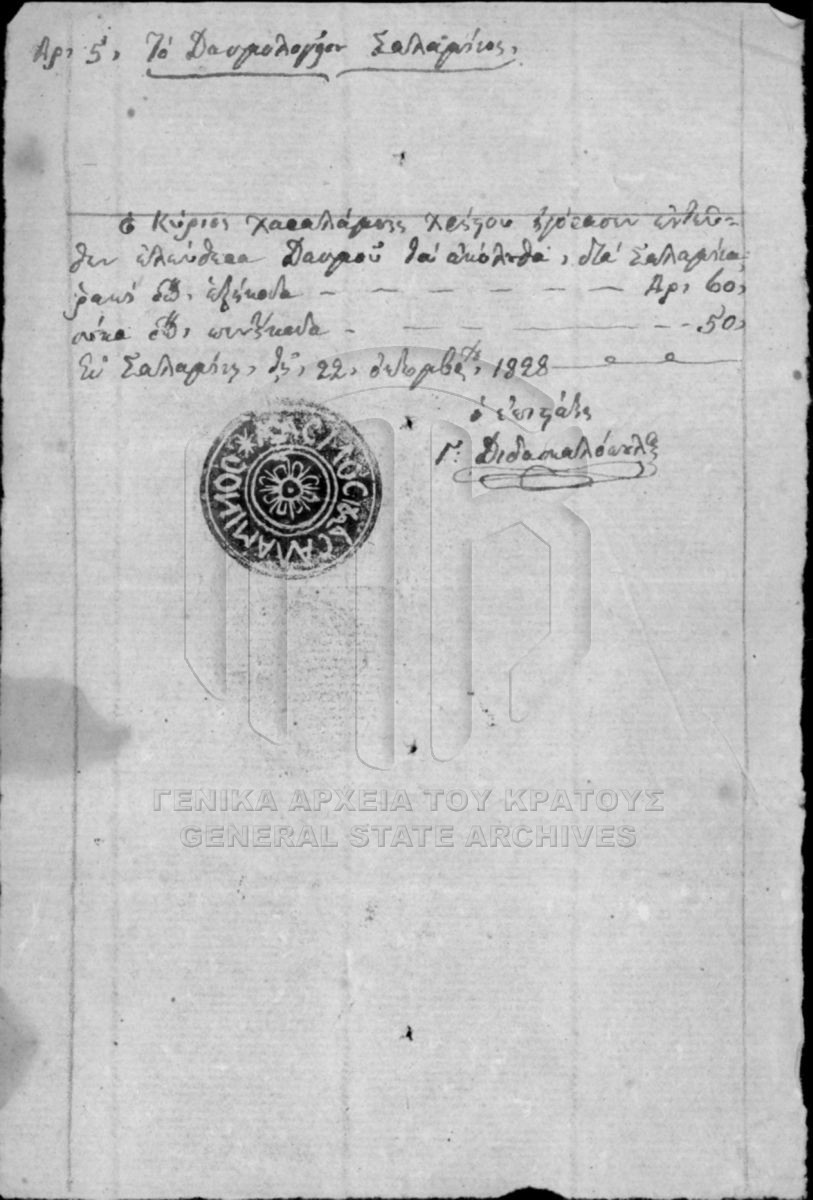 Αρ. 5, Το Δασμολογείον Σαλαμίνος,
ὁ Κύριος χαραλάμπης χρίστου ἐφόρτωσεν ἐντεῦ-
θεν ἐλεύθερα Δασμοῦ τὰ ἀκόλουθα, διὰ Σαλαμίνα,
ρακί ἑξήκοντα — — — — Αρ. 60,
σύκα πενήκοντα — — — — 50,
Ἐν Σαλαμίνι, τῇ, 22, ὀκτωμβρ, 1828
ὁ ἐπιστάτης
Γ: Διδασκαλόπουλος
ΣΑΛΑΜΙΝΟΣ
ΓΕΝΙΚΑ ΑΡΧΕΙΑ ΤΟΥ ΚΡΑΤΟΥΣ
GENERAL STATE ARCHIVES